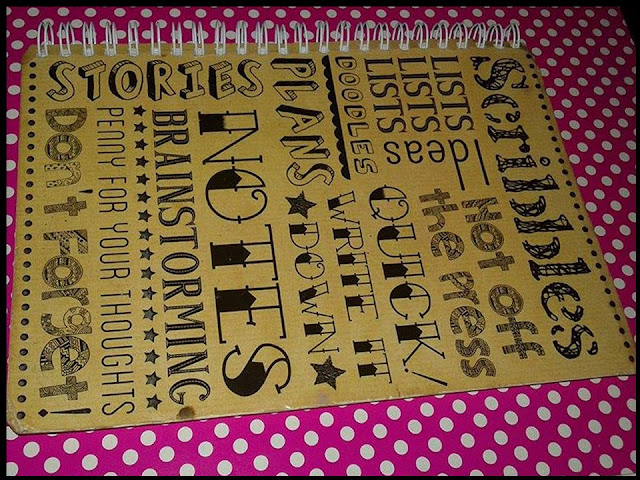 Scribbles
LISTS
LISTS
LISTS
Ideas
Hot off
the press
DOODLES
QUICK!
WRITE IT
DOWN
PLANS
STORIES
NOTES
BRAINSTORMING
PENNY FOR YOUR THOUGHTS
Don't Forget!